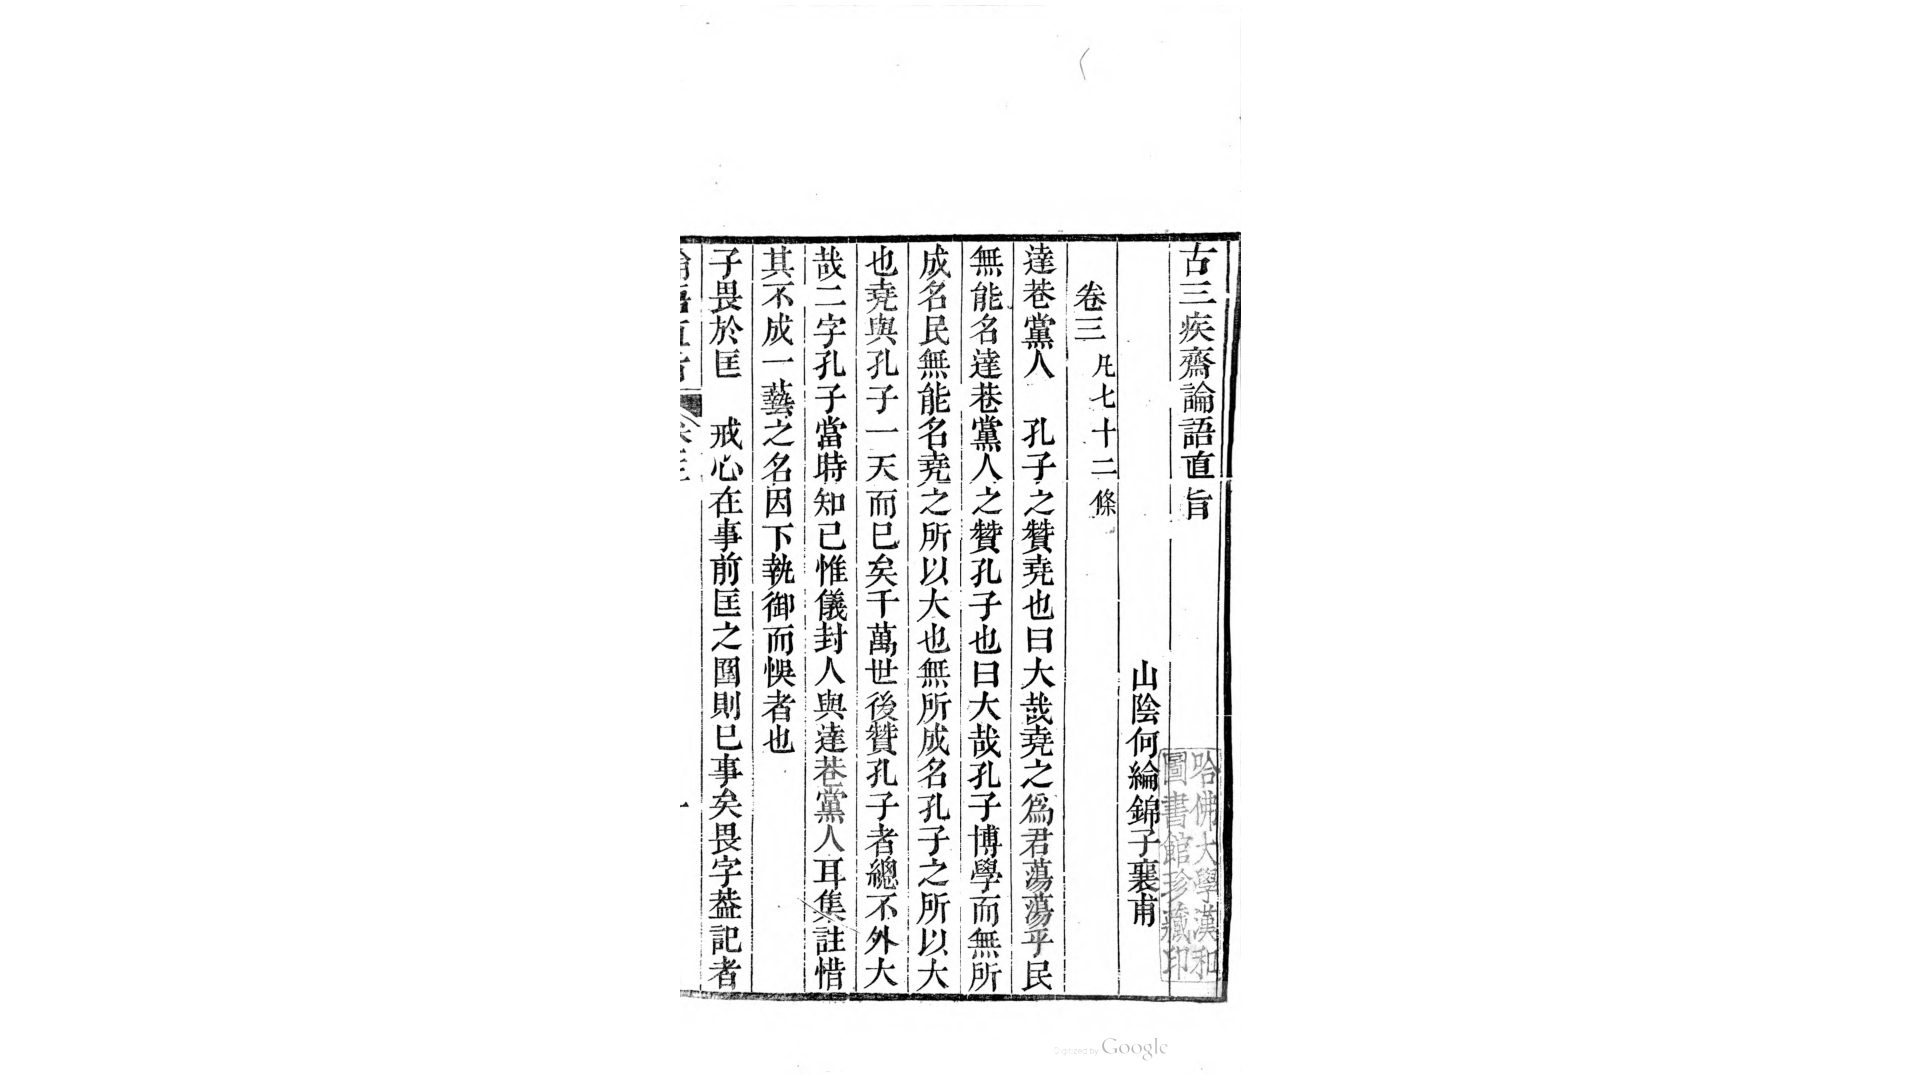 古三疾齋論語直旨
山陰何綸錦子襄甫
卷三 凡七十二條
達巷黨人　孔子之贊堯也曰大哉堯之爲君蕩蕩乎民
無能名達巷黨人之贊孔子也曰大哉孔子博學而無所
成名民無能名堯之所以大也無所成名孔子之所以大
也堯與孔子一天而巳矣千萬世後贊孔子者總不外大
哉二字孔子當時知己惟儀封人與達巷黨人耳集註惜
其不成一藝之名因下執御而悞者也
子畏於匡　戒心在事前匡之圍則巳事矣畏字葢記者
論語直旨 卷三 一
哈佛大學漢和
圖書館珍藏印
Digitized by Google